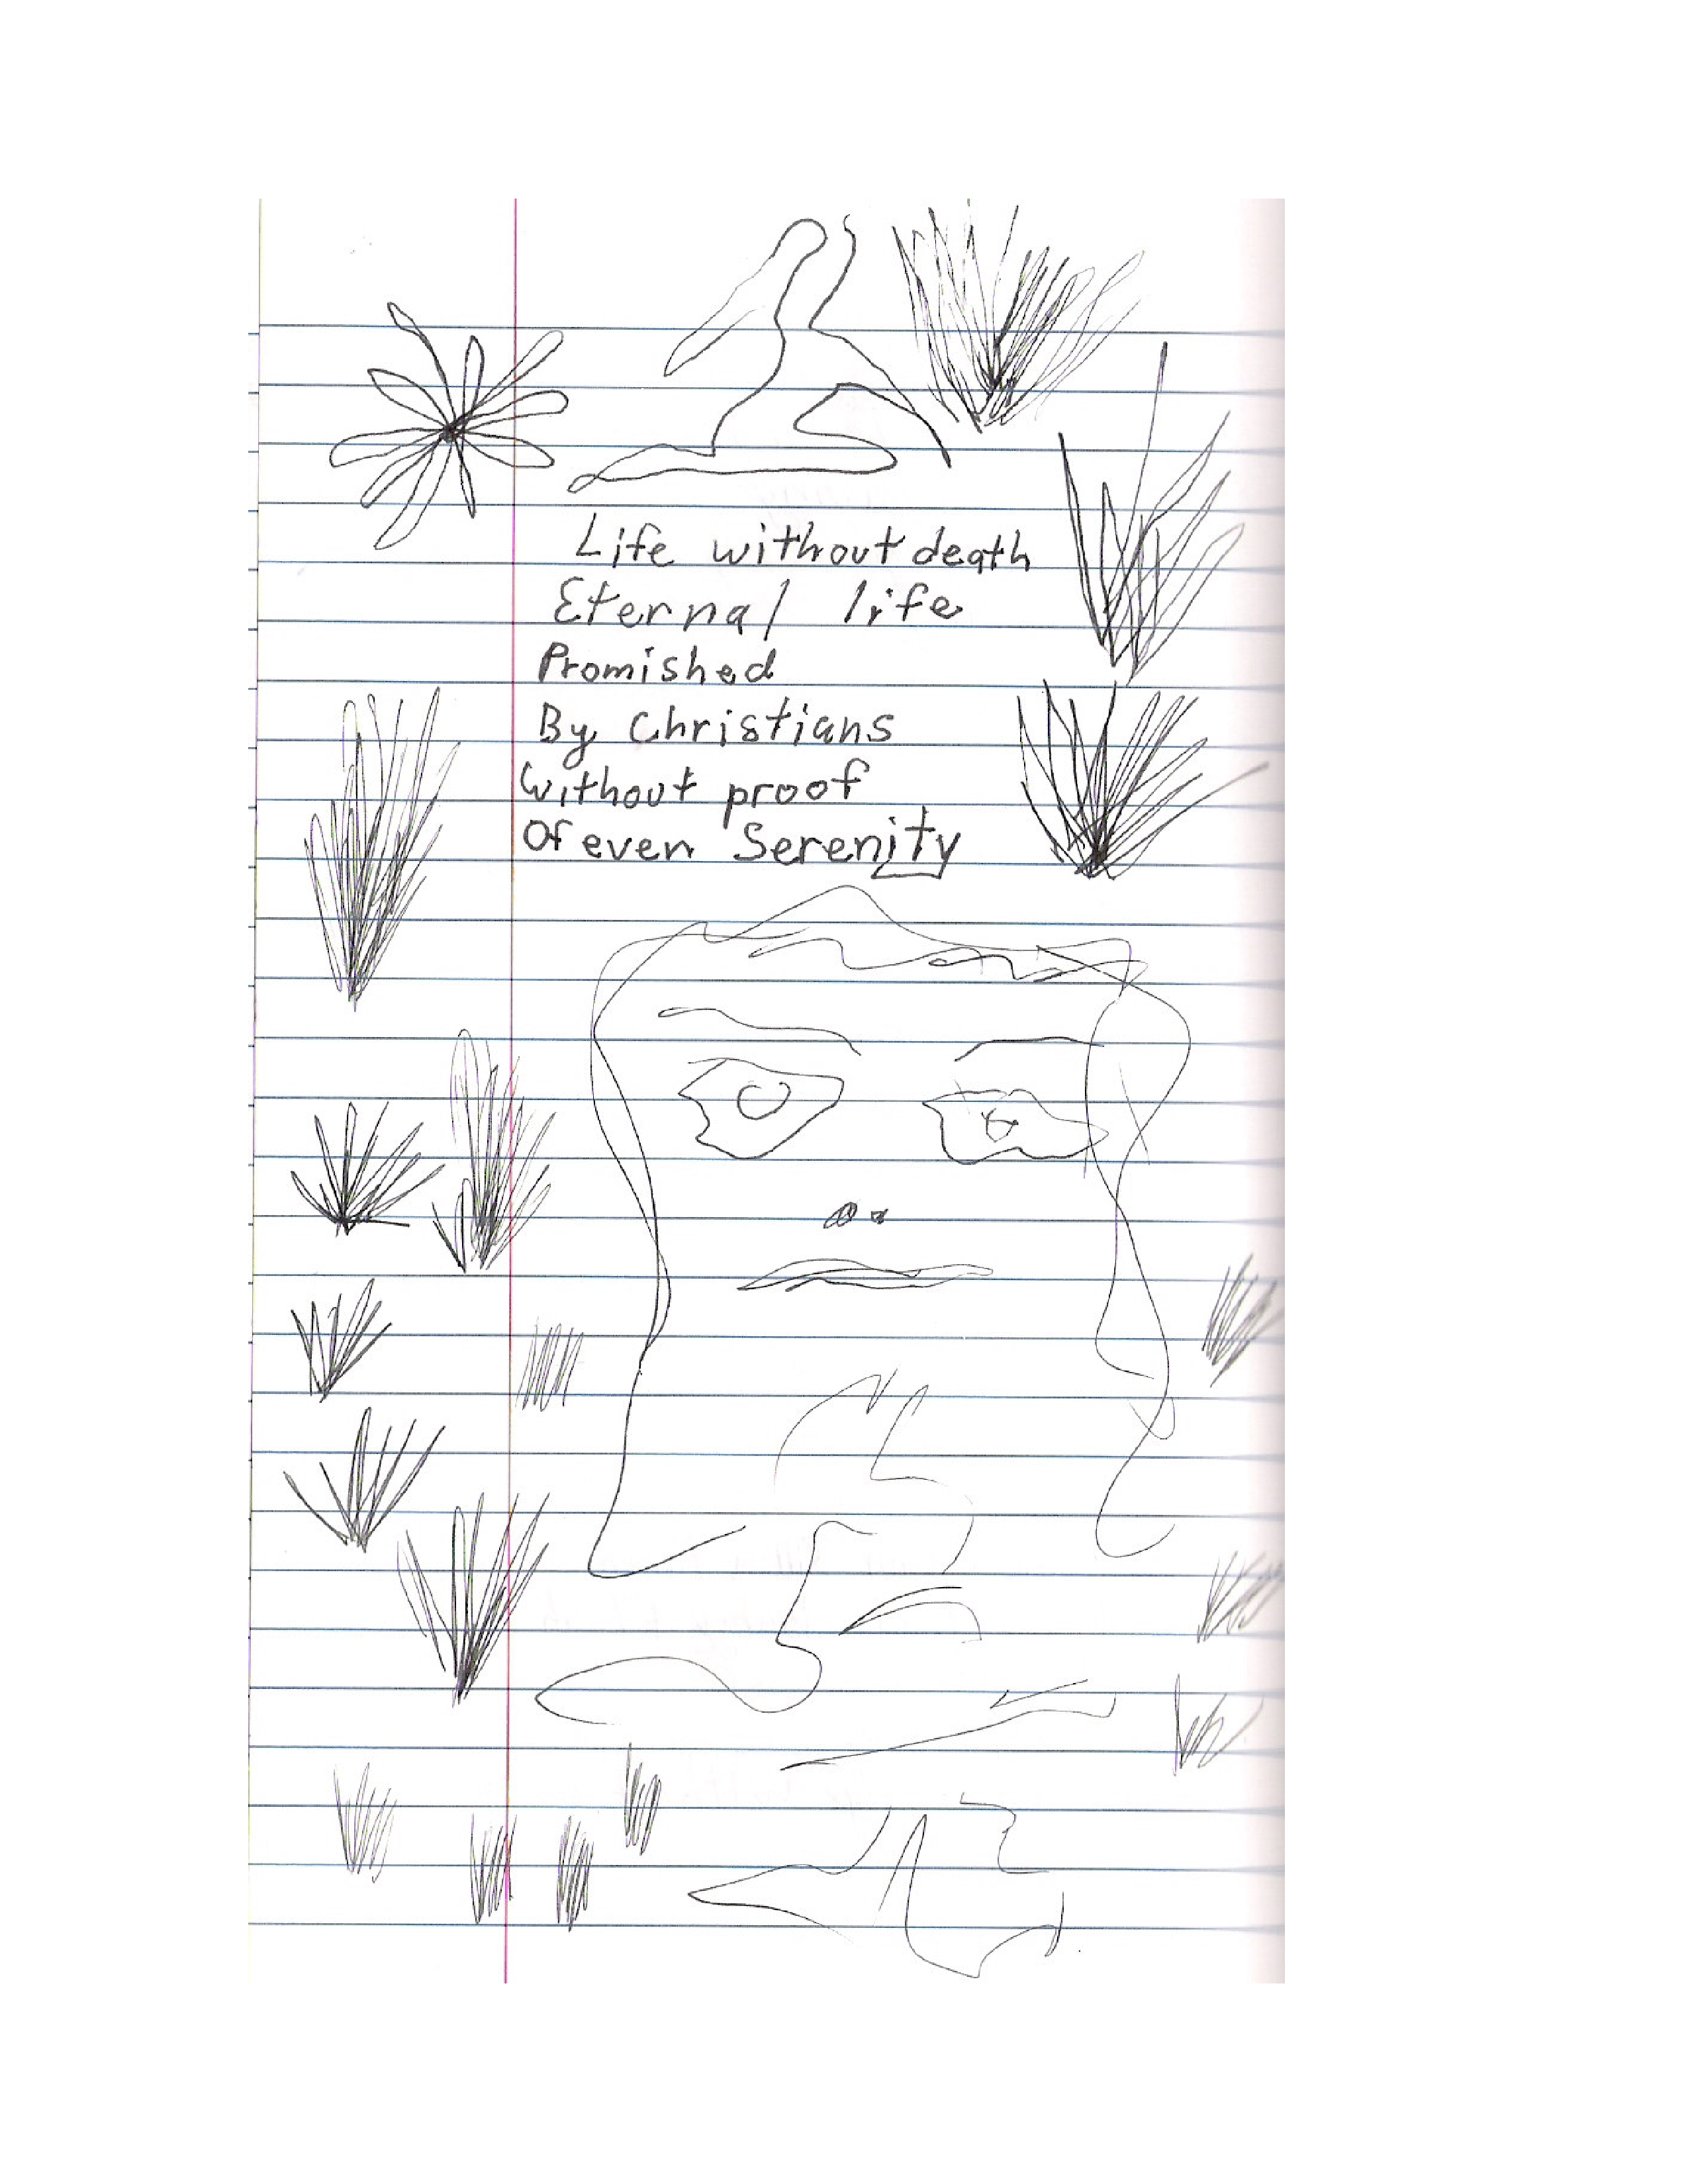 Life without death
Eternal life
Promished
By Christians
Without proof
Of even Serenity